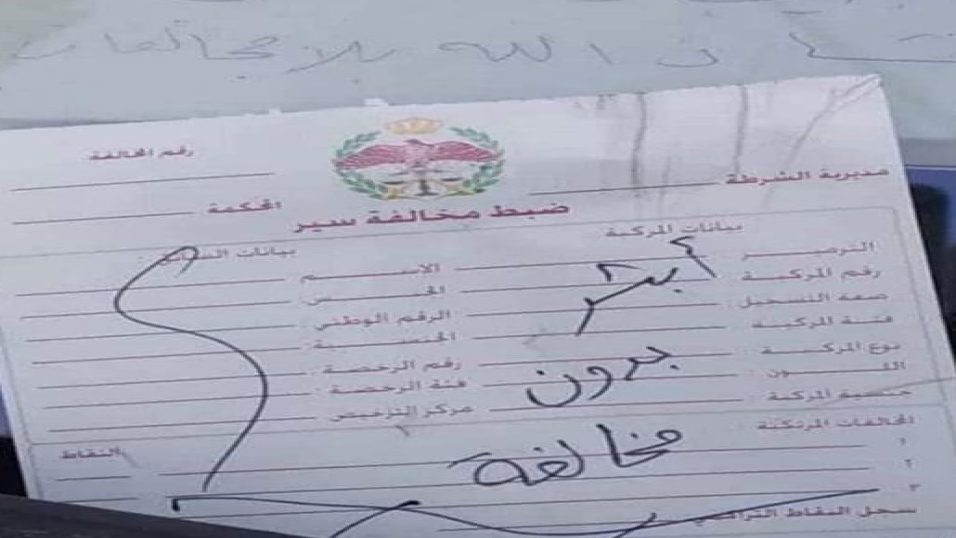 ن الله بلا مخالفات
رقم المخالفة
مديرية الشرطة
المحكمة
ضبط مخالفة سير
بيانات المركبة
بيانات
الترميز
الاسم
رقم المركبة
الجنس
صفة التسجيل
الرقم الوطني
فئة المركبة
الجنسية
نوع المركبة
رقم الرخصة
اللون
فئة الرخصة
جنسية المركبة
مركز الترخيص
أبشر
بدون
مخالفة
المخالفات المرتكبة
النقاط
١
٢
٣
سجل النقاط